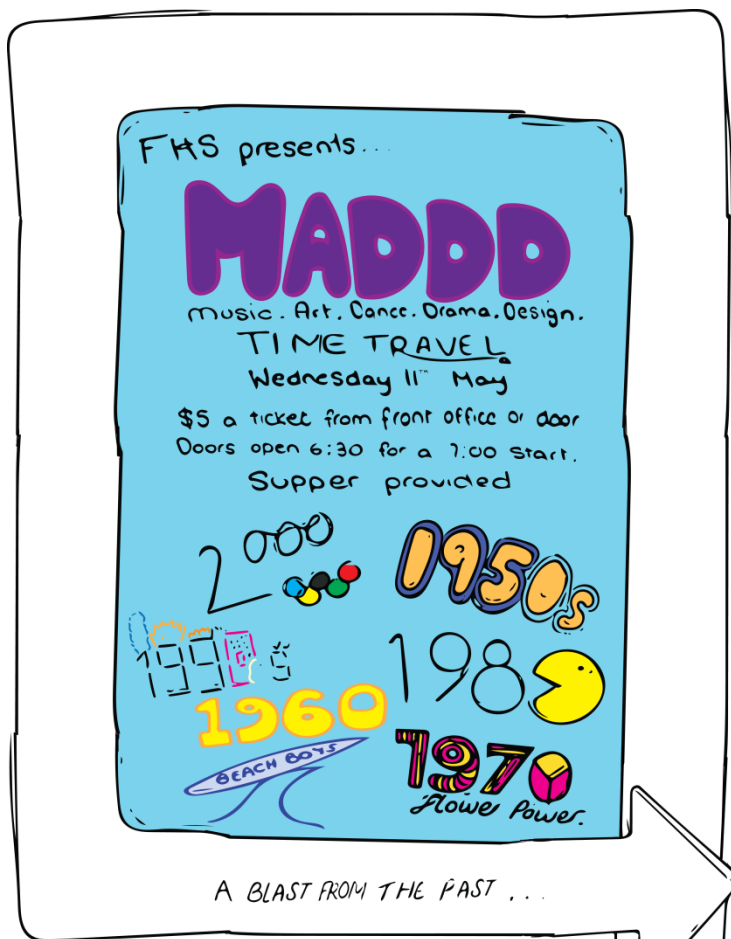 FHS presents...
MADDD
Music. Art. Dance. Drama. Design.
TIME TRAVEL
Wednesday 11TH May
$5 a ticket from front office or door
Doors open 6:30 for a 7:00 start.
Supper provided
2000
1950s
1990s
1980
1960
BEACH BOYS
1970
flower Power.
A BLAST FROM THE PAST ...